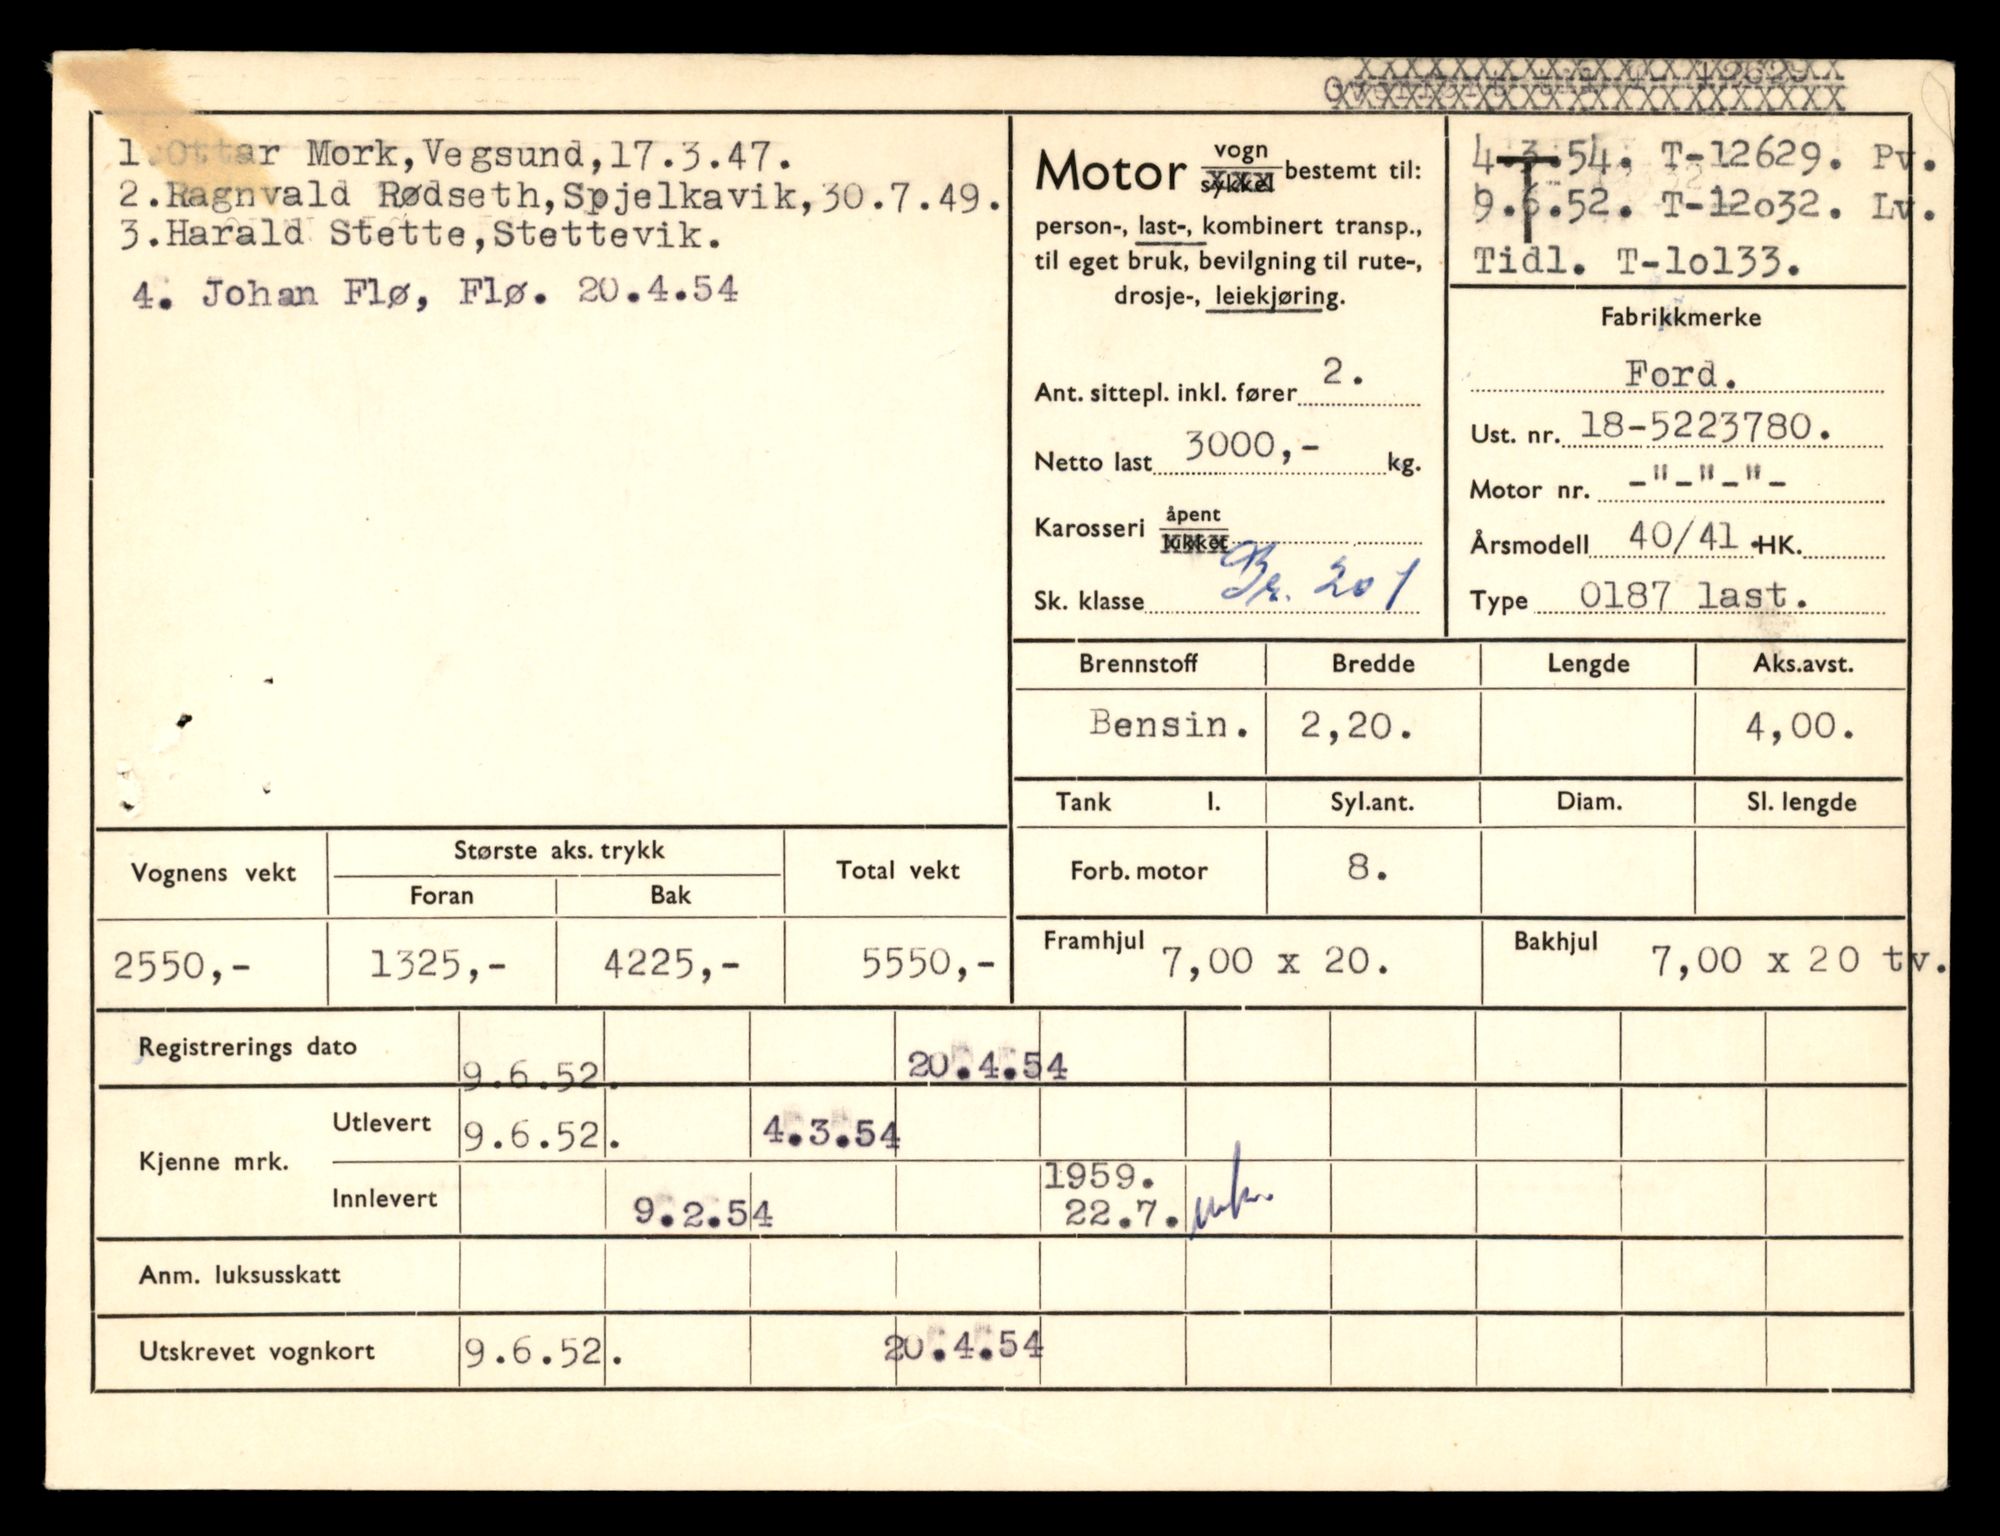 1. Ottar Mork, Vegsund, 17.3.47.
2. Ragnvald Rødseth, Spjelkavik, 30.7.49.
3. Harald Stette, Stettevik.
4. Johan Flø, Flø. 20.4.54
Motor vogn sykkel bestemt til:
person-, last-, kombinert transp.,
til eget bruk, bevilgning til rute-,
drosje-, leiekjøring.
Ant. sittepl. inkl. fører 2.
Netto last 3000,- kg.
Karosseri åpent lukket
Sk. klasse Br. 201
4.3.54. T-12629. Pv.
9.6.52. T-12o32. Lv.
Tidl. T-1o133.
T
Fabrikkmerke
Ford.
Ust. nr. 18-5223780.
Motor nr. -"-"-"-
Årsmodell 40/41 HK.
Type 0187 last.
Brennstoff Bredde Lengde Aks.avst.
Bensin. 2,20. 4,00.
Tank l. Syl.ant. Diam. Sl. lengde
Forb. motor 8.
Framhjul 7,00 x 20. Bakhjul 7,00 x 20 tv.
Vognens vekt Største aks. trykk Total vekt
Foran Bak
2550,- 1325,- 4225,- 5550,-
Registrerings dato 9.6.52. 20.4.54
Kjenne mrk. Utlevert 9.6.52. 4.3.54
Innlevert 9.2.54 1959. 22.7.
Anm. luksusskatt
Utskrevet vognkort 9.6.52. 20.4.54